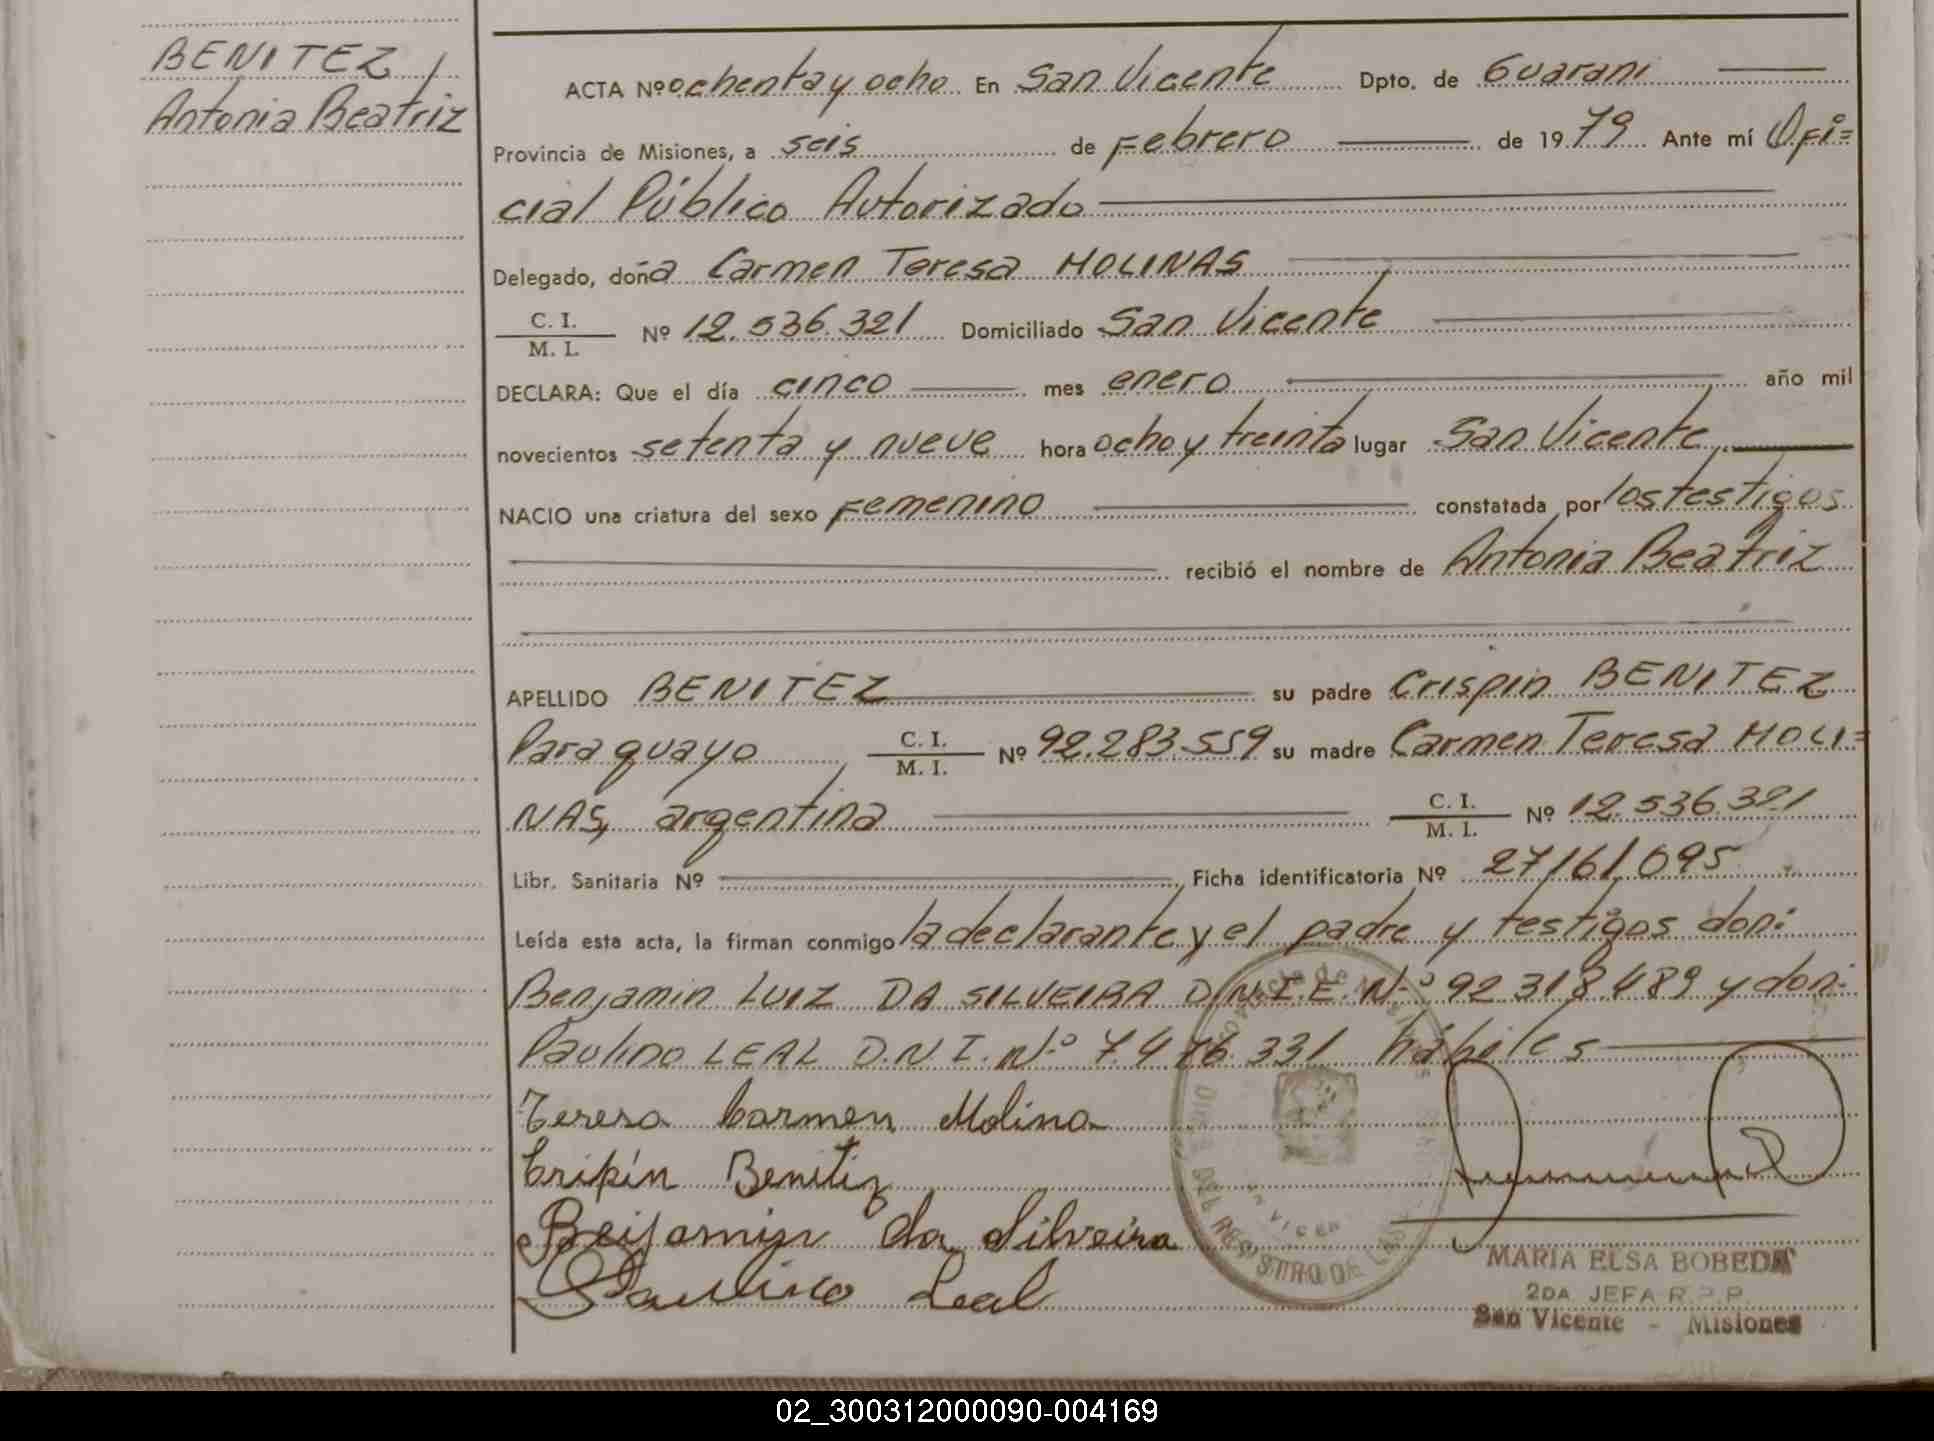 BENITEZ
Antonia Beatriz
ACTA Nº ochenta y ocho En San Vicente Dpto. de Guarani
Provincia de Misiones, a seis de Febrero de 1979 Ante mí Ofi=
cial Público Autorizado
Delegado, doña Carmen Teresa MOLINAS
C. I.
M. I. Nº 12.536.321 Domiciliado San Vicente
DECLARA: Que el día cinco mes enero año mil
novecientos setenta y nueve hora ocho y treinta lugar San Vicente
NACIO una criatura del sexo Femenino constatada por los testigos
recibió el nombre de Antonia Beatriz
APELLIDO BENITEZ su padre Crispin BENITEZ
Paraguayo C. I.
M. I. Nº 92.283.559 su madre Carmen Teresa MOLI=
NAS, argentina C. I.
M. I. Nº 12.536.321
Libr. Sanitaria Nº Ficha identificatoria Nº 27161095
Leída esta acta, la firman conmigo la declarante y el padre y testigos don:
Benjamin LUIZ DA SILVEIRA D.N.I.E. Nº 92 318.489 y don:
Paulino LEAL D.N.I. Nº 7.476.331 hábiles
Teresa Carmen Molina
Cripín Benitiz
Beijamin da Silveira
Paulino Leal
MARIA ELSA BOBEDA
2DA JEFA R.P.P.
San Vicente - Misiones
02_300312000090-004169